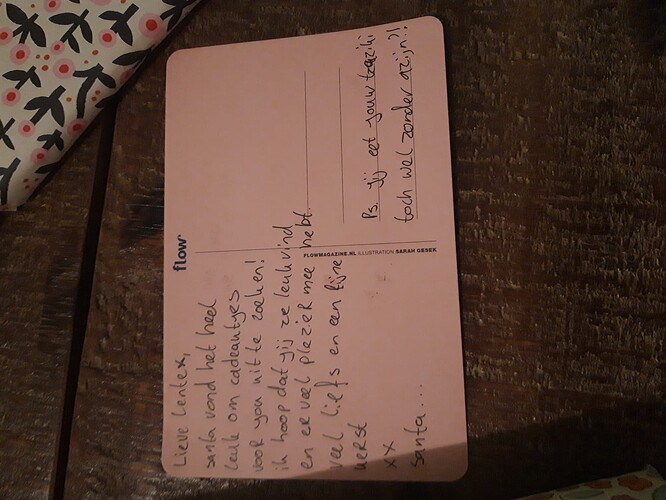 Lieve Lentex,
santa vond het heel
leuk om cadeautjes
voor jou uit te zoeken!
ik hoop dat jij ze leuk vind
en er veel plezier mee hebt.
veel liefs en een fijne
kerst
xx
Santa...
flow
FLOWMAGAZINE.NL ILLUSTRATION SARAH GESEK
Ps. jij eet jouw tzaziki
toch wel zonder azijn?!